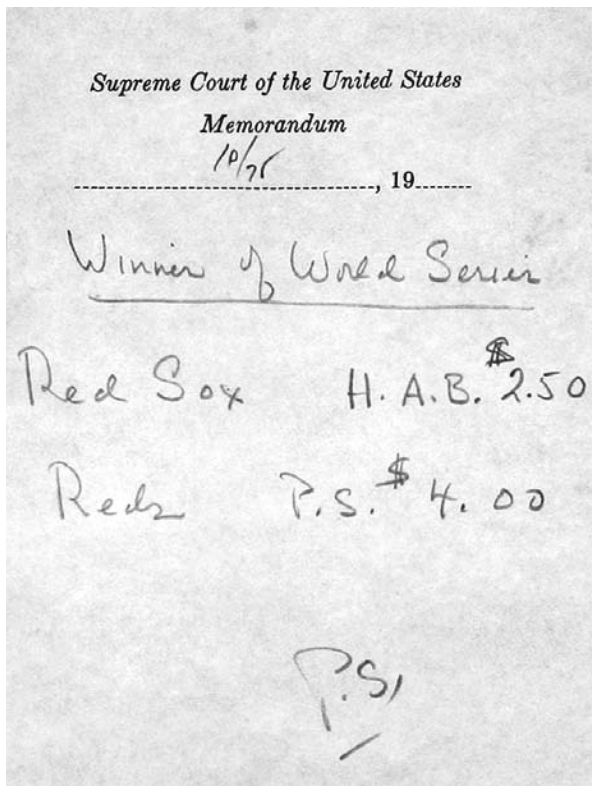 Supreme Court of the United States
Memorandum
10/75
, 19
Winner of World Series
Red Sox H. A. B. $2.50
Reds P. S. $4.00
P. S.